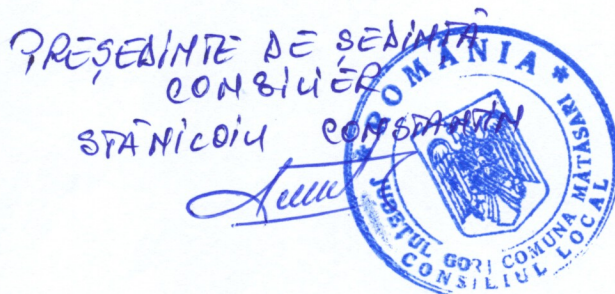 PREȘEDINTE DE ȘEDINȚĂ
CONSILIER
STĂNICOIU CONSTANTIN
* ROMÂNIA *
JUDEȚUL GORJ COMUNA MĂTĂSARI
CONSILIUL LOCAL